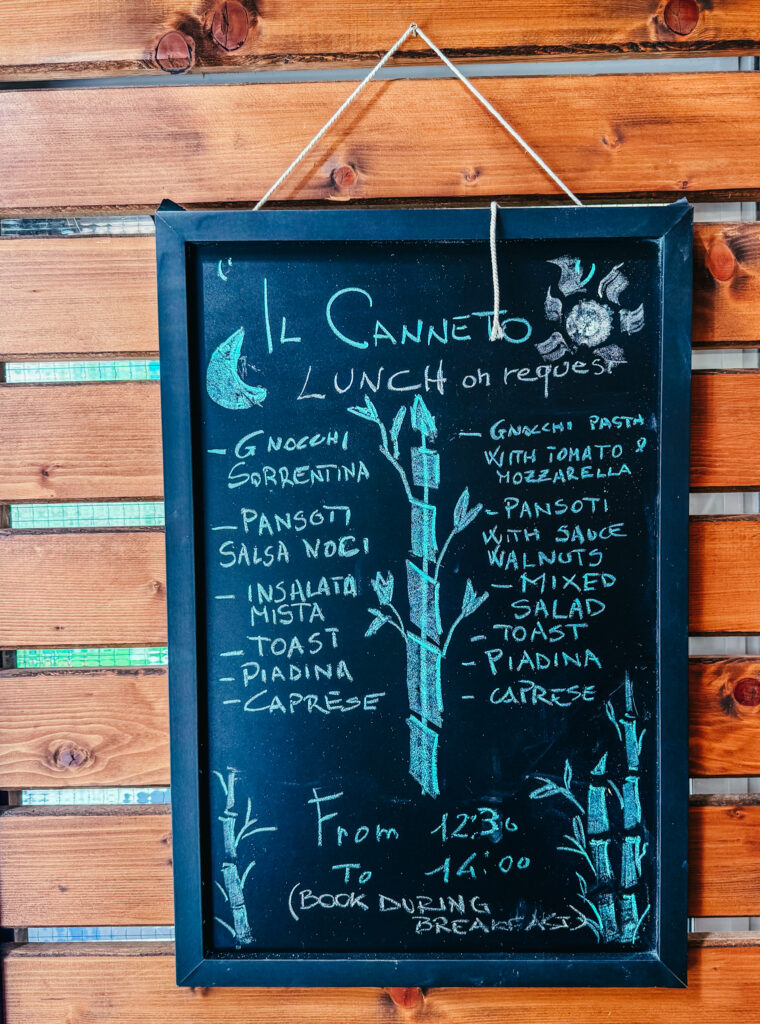 IL CANNETO
LUNCH on request
- GNOCCHI
SORRENTINA
- PANSOTI
SALSA NOCI
- INSALATA
MISTA
- TOAST
- PIADINA
- CAPRESE
- GNOCCHI PASTA
WITH TOMATO &
MOZZARELLA
- PANSOTI
WITH SAUCE
WALNUTS
- MIXED
SALAD
- TOAST
- PIADINA
- CAPRESE
From 12:30
To 14:00
(BOOK DURING
BREAKFAST)